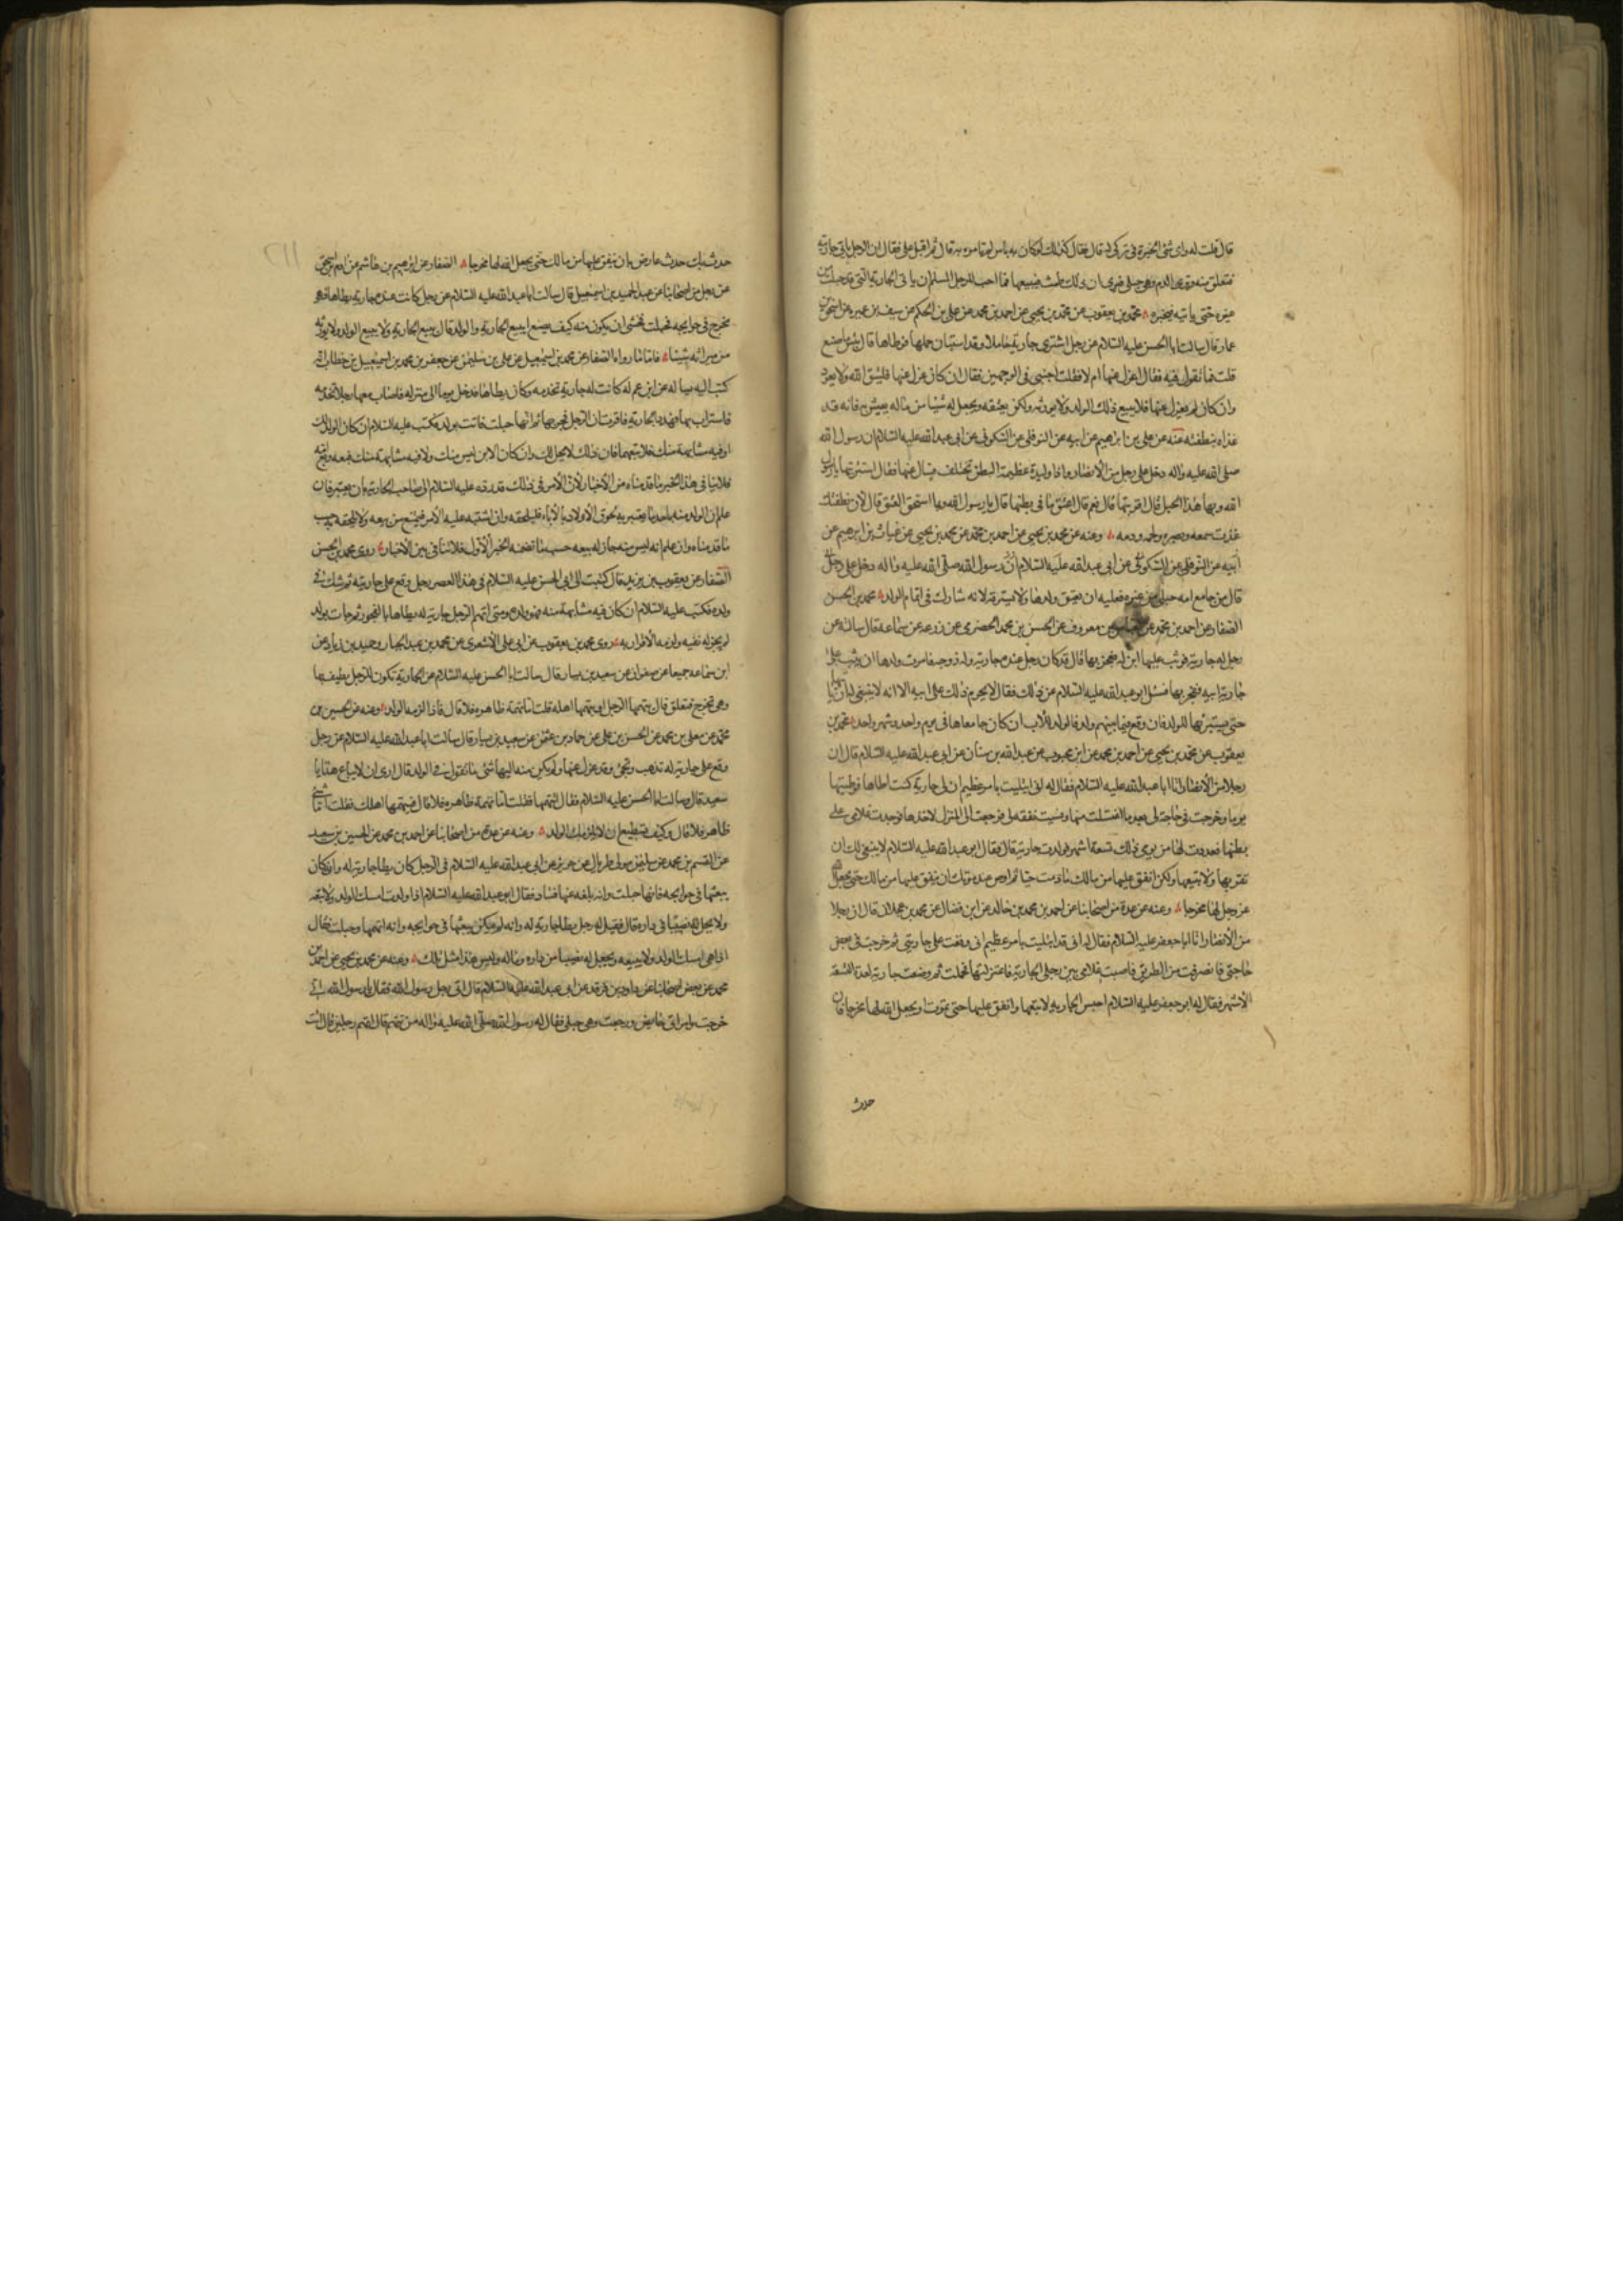 قال قلت له واى شئ الخيرة فى تركى له قال فقال كذلك لو كان به باس لم تامره به قال ثم اقبل على فقال ان الرجل ياتى جاريته
فتعلق منه وترى الدم وهى حبلى فترى ان ذلك طمث فيبيعها فما احب للرجل المسلم ان ياتى الجارية التى قد حبلت من
غيره حتى ياتيه فيخبره محمد بن يعقوب عن محمد بن يحيى عن احمد بن محمد عن على بن الحكم عن سيف بن عميرة عن اسحق بن
عمار قال سالت ابا الحسن عليه السلام عن رجل اشترى جارية حاملا وقد استبان حملها فوطاها قال بئس ما صنع
قلت فما تقول فيه فقال اعزل عنها ام لا فقلت اجبنى فى الوجهين فقال ان كان عزل عنها فليتق الله ولا يعود
وان كان لم يعزل عنها فلا يبيع ذلك الولد ولا يورثه ولكن يعتقه ويجعل له شيئا من ماله يعيش به فانه قد
غذاه بنطفته عنه عن على بن ابرهيم عن ابيه عن النوفلى عن السكونى عن ابى عبد الله عليه السلام ان رسول الله
صلى الله عليه واله دخل على رجل من الانصار واذا وليدة عظيمة البطن تختلف فسال عنها فقال اشتريتها يا رسول
الله وبها هذا الحبل قال اقربتها قال نعم قال اعتق ما فى بطنها قال يا رسول الله وبما استحق العتق قال لان نطفتك
غذت سمعه وبصره ولحمه ودمه وعنه عن محمد بن يحيى عن احمد بن محمد عن محمد بن يحيى عن غياث بن ابرهيم عن
ابيه عن النوفلى عن السكونى عن ابى عبد الله عليه السلام ان رسول الله صلى الله عليه واله دخل على رجل
قال من جامع امه حبلى من غيره فعليه ان يعتق ولدها ولا يسترقه لانه شارك فى اتمام الولد محمد بن الحسن
الصفار عن احمد بن محمد عن العباس بن معروف عن الحسن بن محمد الحضرمى عن زرعه عن سماعه قال سالته عن
رجل له جارية فوثب عليها ابن له ففجر بها قال قد كان رجل عنده جارية وله زوجة فامرت ولدها ان يثب على
جارية ابيه ففجر بها فسئل ابو عبد الله عليه السلام عن ذلك فقال لا يحرم ذلك على ابيه الا انه لا ينبغى له ان ياتيها
حتى يستبرئها للولد فان وقع فيما بينهم ولد فالولد للاب ان كان جامعاها فى يوم واحد وشهر واحد محمد بن
يعقوب عن محمد بن يحيى عن احمد بن محمد عن ابن محبوب عن عبد الله بن سنان عن ابى عبد الله عليه السلام قال ان
رجلا من الانصار اتا ابا عبد الله عليه السلام فقال له انى ابتليت بامر عظيم ان لى جارية كنت اطاها فوطيتها
يوما وخرجت فى حاجة لى بعد ما اغتسلت منها ونسيت نفقة لى فرجعت الى المنزل لاخذها فوجدت غلامى على
بطنها فعددت لها من يومى ذلك تسعة اشهر فولدت جارية قال فقال ابو عبد الله عليه السلام لا ينبغى لك ان
تقربها ولا تبيعها ولكن انفق عليها من مالك ما دمت حيا ثم اوص عند موتك ان ينفق عليها من مالك حتى يجعل الله
عز وجل لها مخرجا وعنه عن عدة من اصحابنا عن احمد بن محمد بن خالد عن ابن فضال عن محمد بن عجلان قال ان رجلا
من الانصار اتا ابا جعفر عليه السلام فقال له انى قد ابتليت بامر عظيم انى وقعت على جاريتى ثم خرجت فى بعض
حاجتى فانصرفت من الطريق فاصبت غلامى بين رجلى الجارية فاعتزلتها فحملت ثم وضعت جارية لعدة التسعة
الاشهر فقال له ابو جعفر عليه السلام احبس الجارية لا تبعها وانفق عليها حتى تموت او يجعل الله لها مخرجا فان
حدث
٢١١
حدث بك حدث فاوص بان ينفق عليها من مالك حتى يجعل الله لها مخرجا الصفار عن ابرهيم بن هاشم عن ادم بن اسحق
عن رجل من اصحابنا عن عبد الحميد بن اسمعيل قال سالت ابا عبد الله عليه السلام عن رجل كانت عنده جارية يطاها وهى
تخرج فى حوايجه فحبلت فخشى ان يكون منه كيف يصنع ايبيع الجارية والولد قال يبيع الجارية ولا يبيع الولد ولا يورثه
من ميراثه شيئا فاما ما رواه الصفار عن محمد بن اسمعيل عن على بن سليمن عن جعفر بن محمد بن اسمعيل بن خطاب انه
كتب اليه يساله عن ابن عم له كانت له جارية تخدمه وكان يطاها فدخل يوما الى منزله فاصاب معها رجلا تحدثه
فاستراب بها فهدد الجارية فاقرت ان الرجل فجر بها ثم انها حبلت فاتت بولد فكتب عليه السلام ان كان الولد لك
او فيه مشابهة منك فلا تبعهما فان ذلك لا يحل لك وان كان الابن ليس منك ولا فيه مشابهة منك فبعه وبع امه
فلا ينافى هذا الخبر ما قدمناه من الاخبار لان الامر فى ذلك قد رده عليه السلام الى صاحب الجارية بان يعتبر فان
علم ان الولد منه باحد ما يعتبر به لحوق الاولاد بالاباء فليلحقه وان اشتبه عليه الامر فيمتنع من بيعه ولا يلحقه حسب
ما قدمناه وان علم انه ليس منه جاز له بيعه حسب ما تضمنه الخبر الاول فلا تنافى بين الاخبار روى محمد بن الحسن
الصفار عن يعقوب بن يزيد قال كتبت الى ابى الحسن عليه السلام فى هذا العصر رجل وقع على جاريته ثم شك فى
ولده فكتب عليه السلام ان كان فيه مشابهة منه فهو ولده ومتى اتهم الرجل جارية له يطاها بالفجور ثم جات بولد
لم يجز له نفيه ولزمه الاقرار به روى محمد بن يعقوب عن ابى على الاشعرى عن محمد بن عبد الجبار وحميد بن زياد عن
ابن سماعه جميعا عن صفوان عن سعيد بن يسار قال سالت ابا الحسن عليه السلام عن الجارية تكون للرجل يطيف بها
وهى تخرج فتعلق قال يتهمها الرجل او يتهمها اهله قلت اما تهمة ظاهرة فلا قال فاذا لزمه الولد وعنه عن الحسين بن
محمد عن معلى بن محمد عن الحسن بن على عن حماد بن عثمن عن سعيد بن يسار قال سالت ابا عبد الله عليه السلام عن رجل
وقع على جارية له تذهب وتجئ وقد عزل عنها ولم يكن منه اليها شئ ما تقول فى الولد قال ارى ان لا يباع هذا يا
سعيد قال وسالت ابا الحسن عليه السلام فقال اتتهمها فقلت اما تهمة ظاهرة فلا قال فيتهمها اهلك فقلت اما شئ
ظاهر فلا قال وكيف تستطيع ان لا يلزمك الولد وعنه عن عدة من اصحابنا عن احمد بن محمد عن الحسين بن سعيد
عن القسم بن محمد عن سليم مولى طربال عن حريز عن ابى عبد الله عليه السلام فى الرجل كان يطا جارية له وانه كان
يبعثها فى حوايجه فانها حبلت وانه بلغه عنها فساد فقال ابو عبد الله عليه السلام اذا ولدت امسك الولد ولا يبعه
ولا يجعل له نصيبا فى داره قال فقيل له رجل يطا جارية له وانه لم يكن يبعثها فى حوايجه وانه اتهمها وحبلت فقال
اذا هى امسك الولد ولا يبيعه ويجعل له نصيبا من داره وماله وليس هذا مثل تلك وعنه عن محمد بن يحيى عن احمد بن
محمد عن بعض اصحابنا عن داود بن فرقد عن ابى عبد الله عليه السلام قال اتى رجل رسول الله فقال يا رسول الله انى
خرجت وامراتى حايض ورجعت وهى حبلى فقال له رسول الله صلى الله عليه واله من تتهم قال اتهم رجلين قال ائت